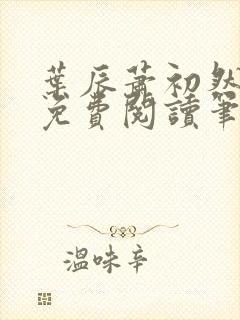 葉辰蕭初然
免費閱讀筆
溫味辛